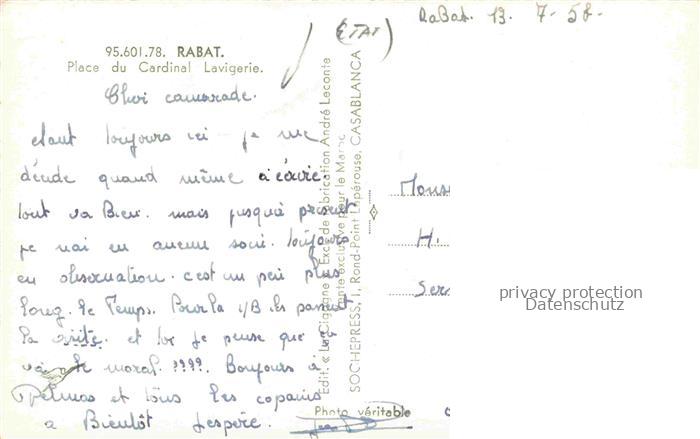 RaBat. 13. 7-58-
(ETAT)
95.601.78. RABAT.
Place du Cardinal Lavigerie.
Cher camarade.
etant toujours ici je me
décide quand même à écrire.
tout va Bien. mais jusqu'à présent
je n'ai eu aucun soin. toujours
en observation. c'est un peu plus
long. le Temps. Pour la ils passent
la visite. et toi je pense que
va le moral. ???? Bonjours à
et tous les copains
a Bientôt j'espère.
Edit. « La Cigogne » Excl. de Fabrication André Leconte
exclusive pour le Maroc
SOCHEPRESS, 1, Rond-Point Lapérouse, CASABLANCA
Photo véritable
Mons
H.
Ser
privacy protection
Datenschutz